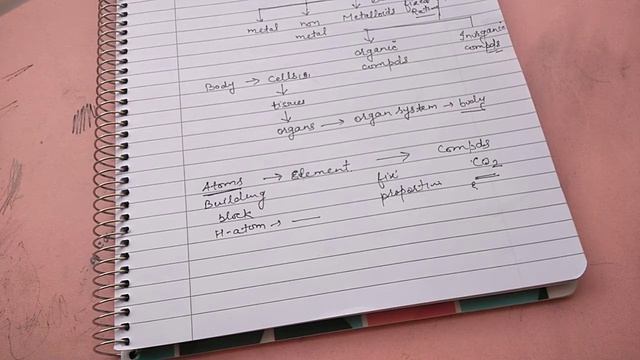 metal non metal Metalloids fixed Ratio
organic compds Inorganic compds
Body → cells
↓
tissues
↓
organs → organ system → body
Atoms → Element → Compds
Building block fix proportion CO2
H-atom →